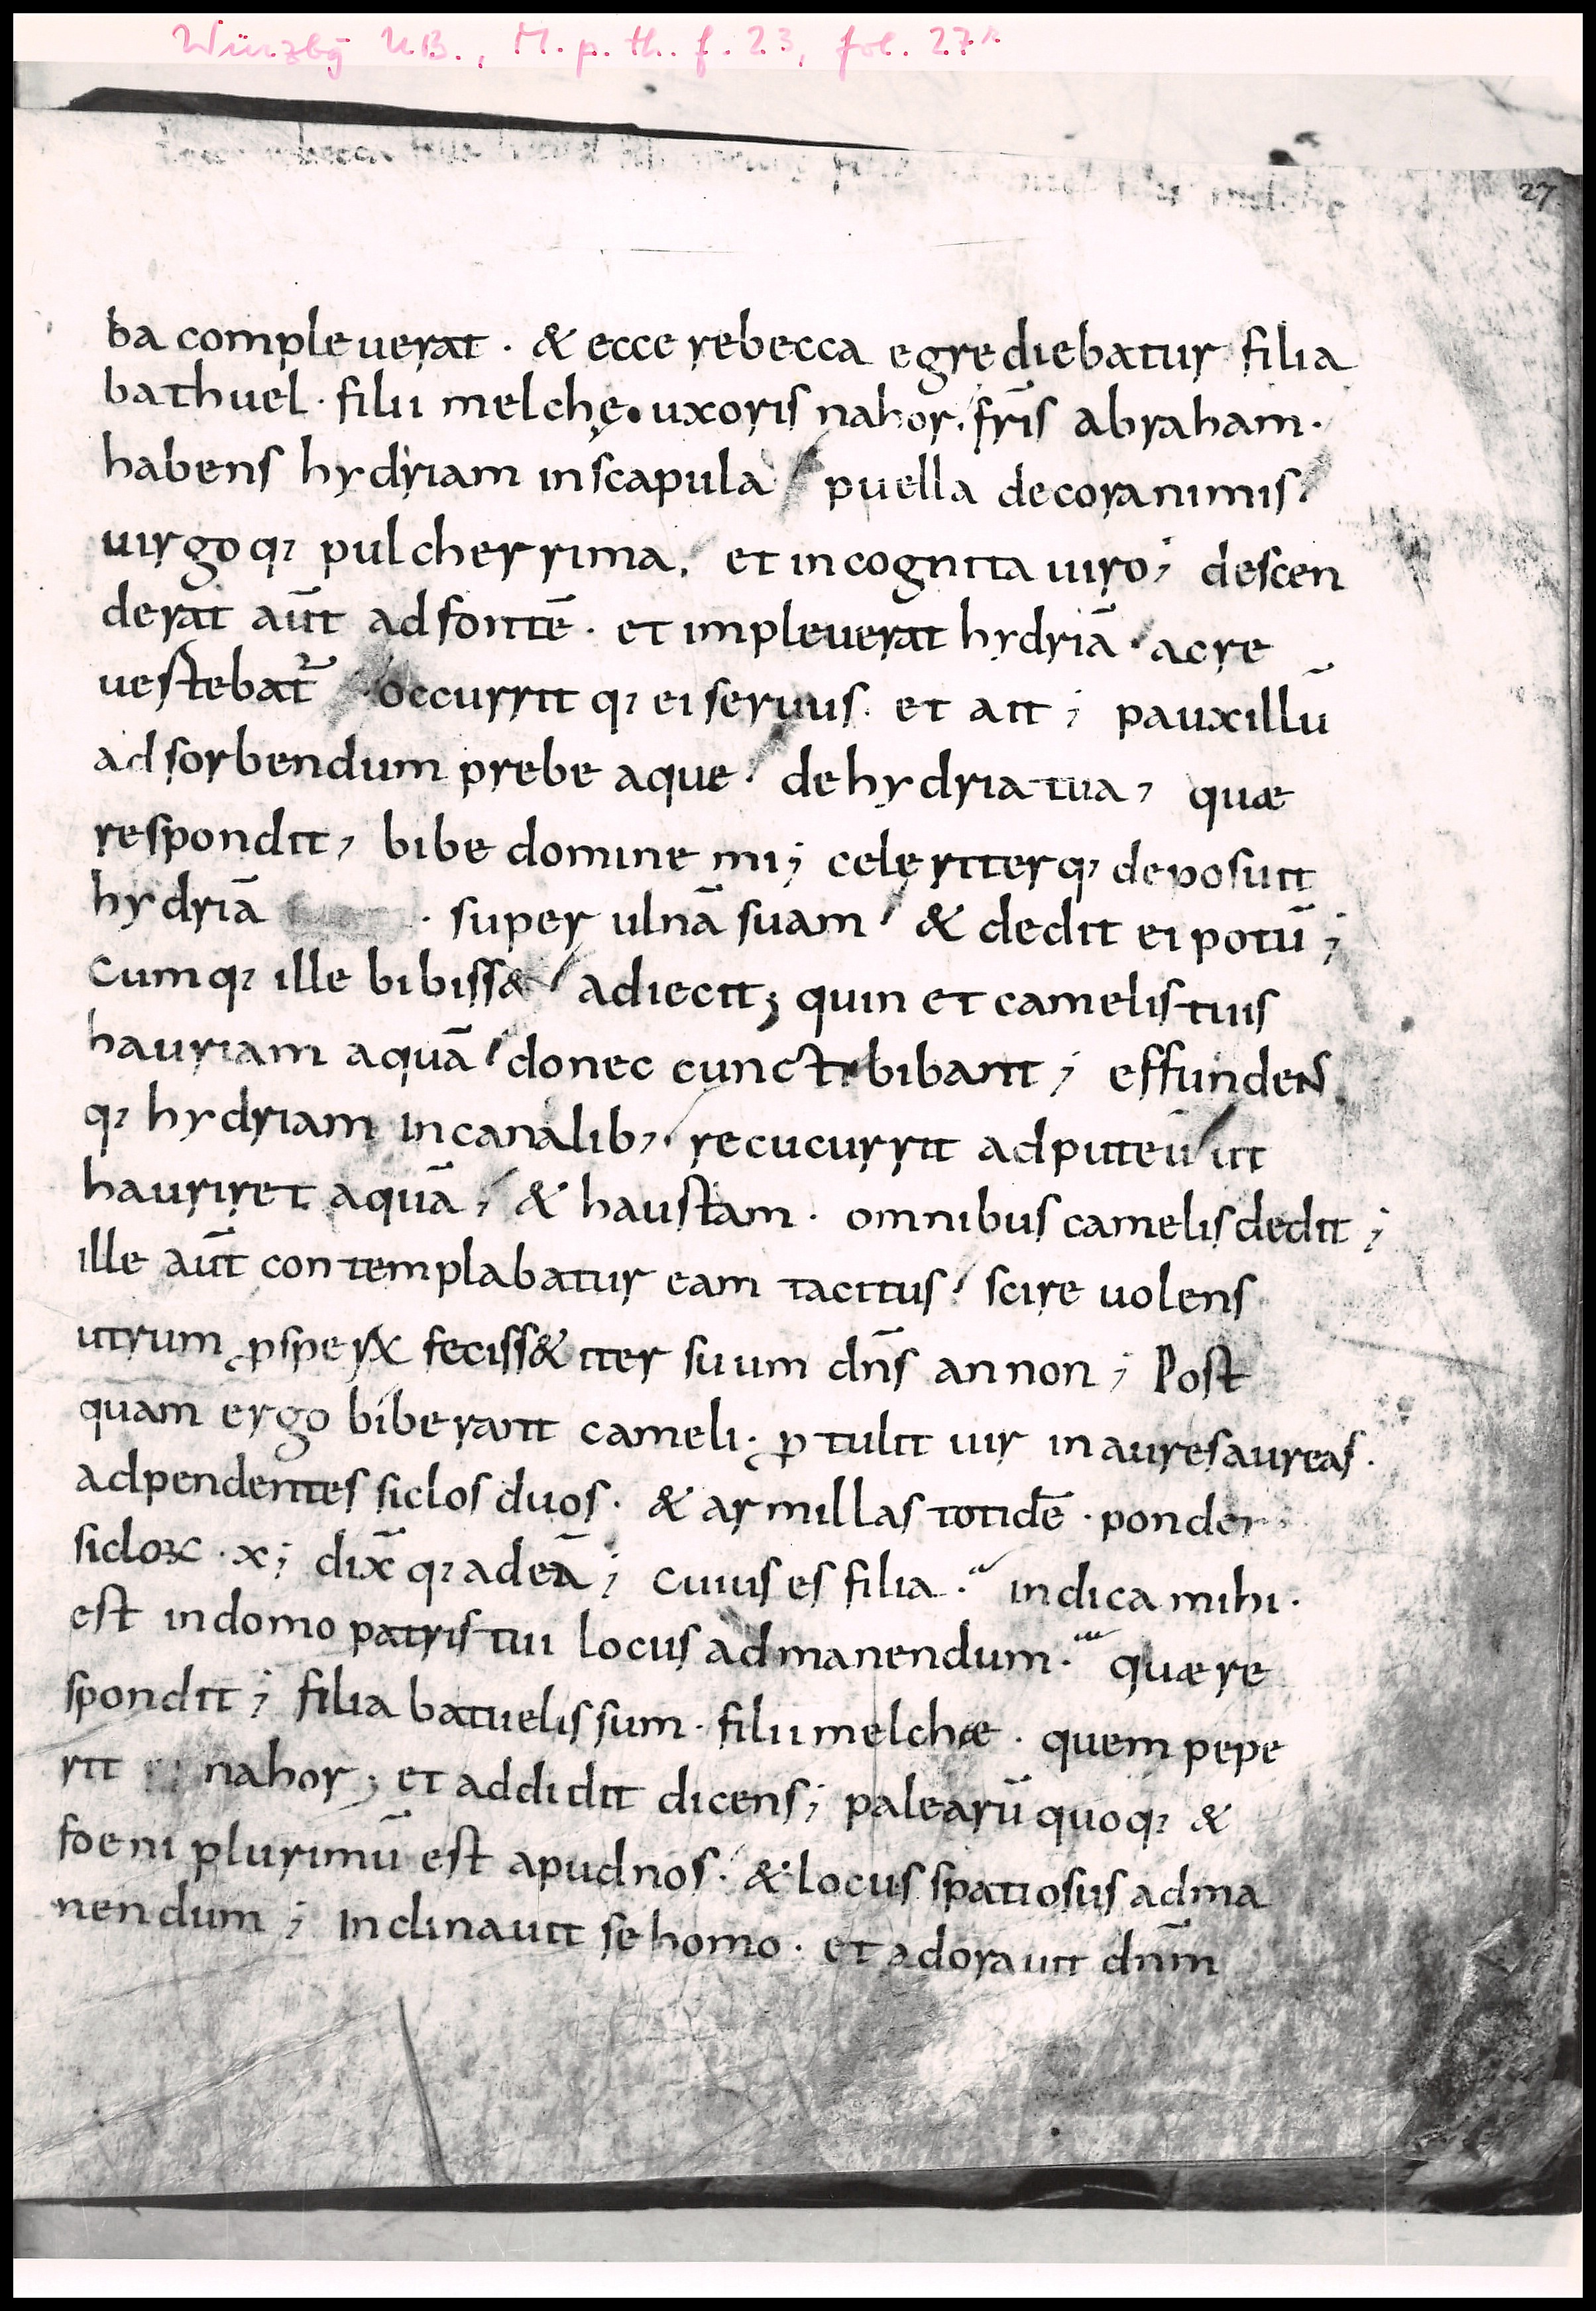 Würzbg UB., M. p. th. f. 23, fol. 27r
27
ba compleuerat · & ecce rebecca egrediebatur filia
bathuel · filii melchę · uxoris nahor · fr̄is abraham ·
habens hydriam in scapula · puella decora nimis ·
uirgo q; pulcherrima · et incognita uiro ; descen
derat aūt ad fontē · et impleuerat hydriā · ac re
uertebat᷑ · occurrit q; ei seruus · et ait ; pauxillū
ad sorbendum prebe aque · de hydria tua , quae
respondit , bibe domine mi ; celeriter q; deposuit
hydriā · super ulnā suam · & dedit ei potū ;
Cum q; ille bibiss& · adiecit ; quin et camelis tuis
hauriam aquā · donec cuncti bibant ; effundens
q; hydriam in canalib; · recucurrit ad puteū · ut
hauriret aquā · & haustam · omnibus camelis dedit ;
ille aūt contemplabatur eam tacitus · scire uolens
utrum ꝓsperū feciss& iter suum dn̄s an non ; Post
quam ergo biberant cameli · ꝓtulit uir inaures aureas ·
adpendentes siclos duos · & armillas totidē · ponder
sicloꝝ · x ; dix̄ q; ad eā ; cuius es filia · indica mihi ·
est in domo patris tui locus ad manendum · quae re
spondit ; filia batuelis sum · filii melchae · quem pepe
rit nahor ; et addidit dicens ; palearū quoq; &
foeni plurimū est apud nos · & locus spatiosus ad ma
nendum ; Inclinauit se homo · et adorauit dn̄m